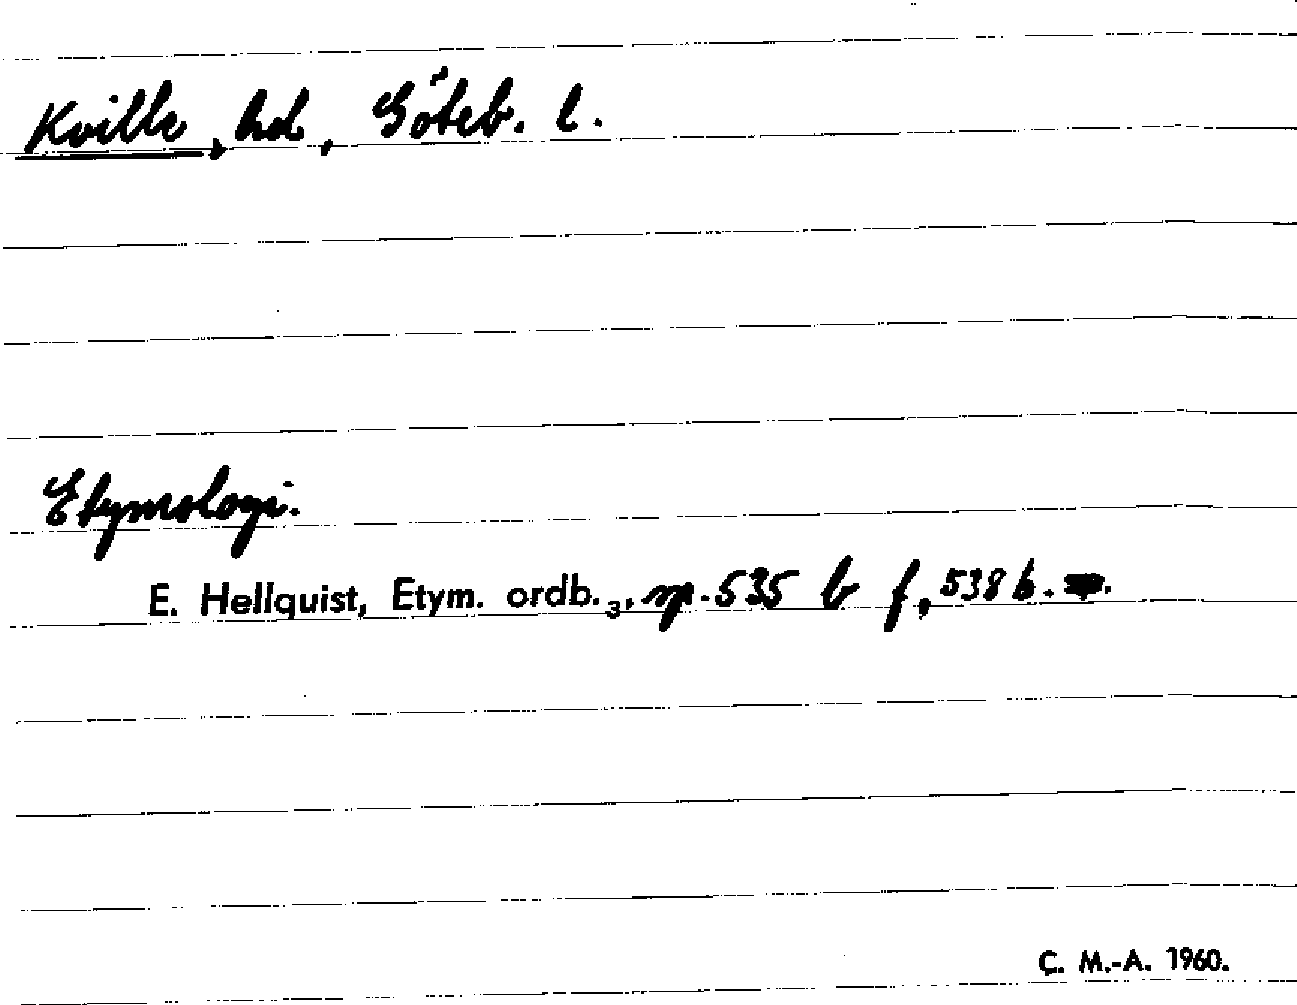 Kville, hd, Göteb. l.
Etymologi.
E. Hellquist, Etym. ordb.₃, sp. 535 b f, 538 b.
C. M.-A. 1960.